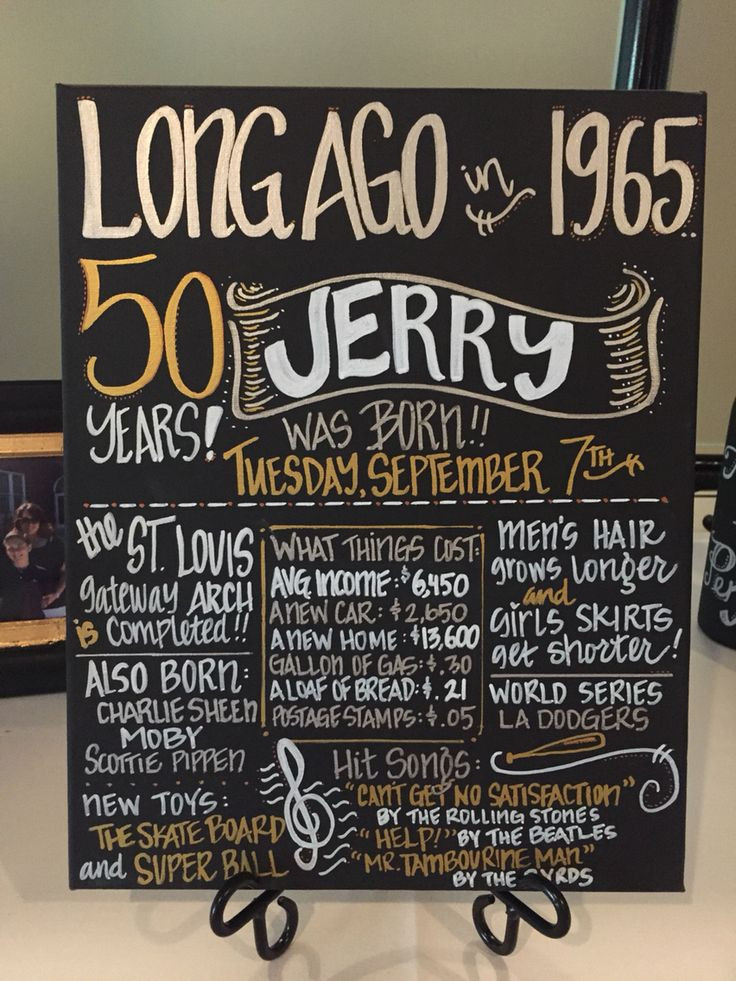 LONG AGO in 1965
50
YEARS!
JERRY
WAS BORN!!
TUESDAY, SEPTEMBER 7TH
the ST. LOUIS
gateway ARCH
is completed!!
ALSO BORN:
CHARLIE SHEEN
MOBY
SCOTTIE PIPPEN
NEW TOYS:
THE SKATE BOARD
and SUPER BALL
WHAT THINGS COST:
AVG INCOME: $6,450
A NEW CAR: $2,650
A NEW HOME: $13,600
GALLON OF GAS: $.30
A LOAF OF BREAD: $.21
POSTAGE STAMPS: $.05
MEN'S HAIR
grows longer
and
GIRLS SKIRTS
get shorter!
WORLD SERIES
LA DODGERS
Hit Songs:
"CAN'T GET NO SATISFACTION"
BY THE ROLLING STONES
"HELP!" BY THE BEATLES
"MR. TAMBOURINE MAN"
BY THE BYRDS